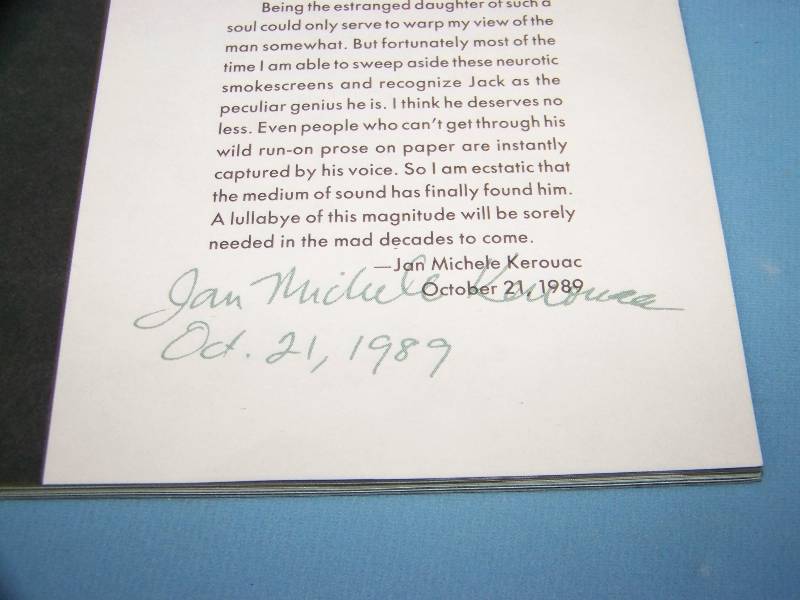 Being the estranged daughter of such a
soul could only serve to warp my view of the
man somewhat. But fortunately most of the
time I am able to sweep aside these neurotic
smokescreens and recognize Jack as the
peculiar genius he is. I think he deserves no
less. Even people who can't get through his
wild run-on prose on paper are instantly
captured by his voice. So I am ecstatic that
the medium of sound has finally found him.
A lullabye of this magnitude will be sorely
needed in the mad decades to come.
—Jan Michele Kerouac
October 21, 1989
Jan Michele Kerouac
Oct. 21, 1989